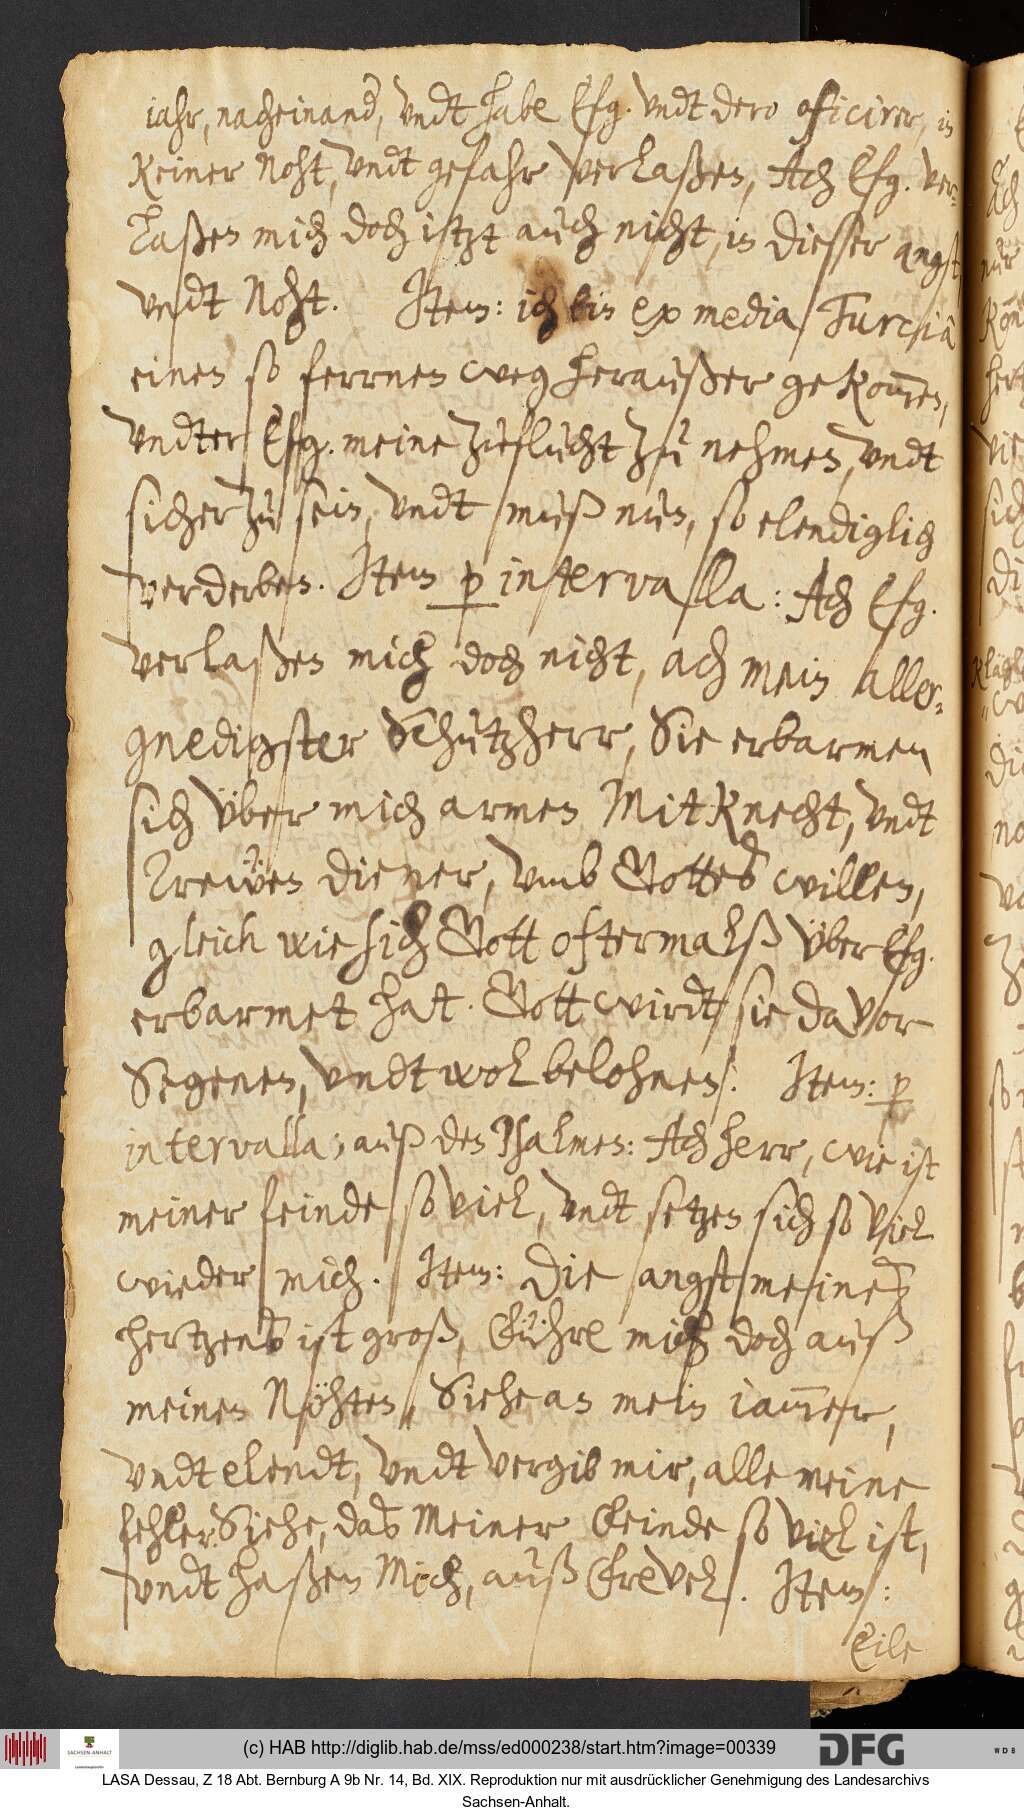 iahr, nacheinand, vndt habe Efg. vndt dero officirer, in
keiner Noht, vndt gefahr verlaßen, Ach Efg. ver-
laßen mich doch itzt auch nicht, in diesser angst
vndt Noht. Item: ich bin ex media Turciâ
einen so ferrnen weg heraußer gekom̅en,
vndter Efg. meine zueflucht zu nehmen, vndt
sicher zu sein, vndt muß nun, so elendiglich
verderben. Item p intervalla: Ach Efg.
verlaßen mich doch nicht, ach mein aller-
gnedigster Schutzherr, Sie erbarmen
sich vber mich armen MitKnecht, vndt
Trewen diener, vmb Gottes willen,
gleich wie sich Gott oftermalß vber Efg.
erbarmet hat. Gott wirdt sie davor
Segenen, vndt wol belohnen. Item: p
intervalla; auß den Psalmen: Ach herr, wie ist
meiner feinde so viel, vndt setzen sich so viel
wieder mich. Item: Die angst meines
hertzens ist groß, führe mich doch auß
meinen Nöhten, Siehe an mein iam̅er,
vndt elendt, vndt vergib mir, alle meine
fehler. Siehe, das meiner feinde so viel ist,
vndt haßen Mich, auß frevel. Item:
Eile
(c) HAB http://diglib.hab.de/mss/ed000238/start.htm?image=00339
SACHSEN-ANHALT
DFG
WDB
LASA Dessau, Z 18 Abt. Bernburg A 9b Nr. 14, Bd. XIX. Reproduktion nur mit ausdrücklicher Genehmigung des Landesarchivs
Sachsen-Anhalt.